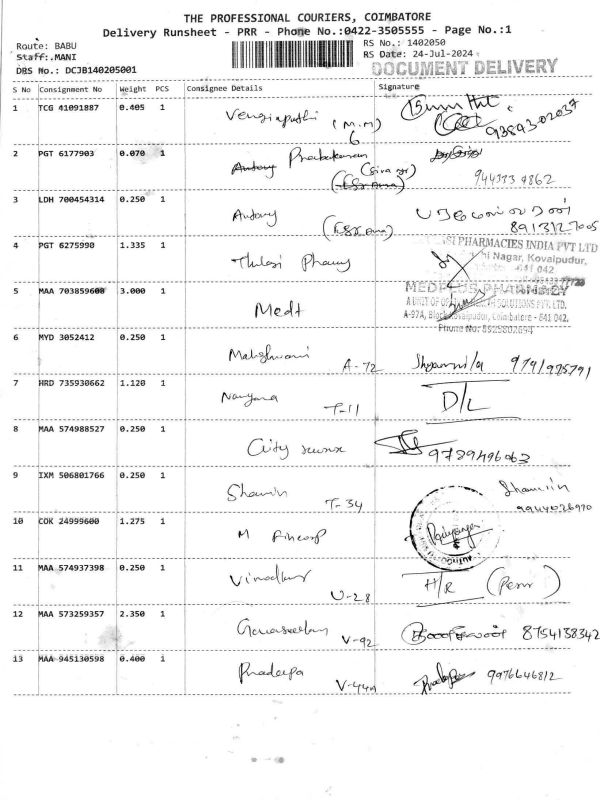 THE PROFESSIONAL COURIERS, COIMBATORE
Delivery Runsheet - PRR - Phone No.:0422-3505555 - Page No.:1
Route: BABU
Staff:.MANI
DRS No.: DCJB140205001
RS No.: 1402050
RS Date: 24-Jul-2024
DOCUMENT DELIVERY
S No Consignment No Weight PCS Consignee Details Signature
1 TCG 41091887 0.405 1 (M.M) 6 9384302037
2 PGT 6177903 0.070 1 Antony Prabakaran (Siva gr) 9443334862
3 LDH 700454314 0.250 1 Antony
4 PGT 6275990 1.335 1 Thulasi Pharmy
PHARMACIES INDIA PVT LTD
Nagar, Kovaipudur,
641 042
5 MAA 703859600 3.000 1 Medt
MEDPLUS PHARMACY
A UNIT OF SOLUTIONS PVT. LTD.
A-97A, Block Kovaipudur, Coimbatore - 641 042.
Phone No: 8925802694
6 MYD 3052412 0.250 1 Maheshwari A-72 9791975791
7 HRD 735930662 1.120 1 Narayana T-11 D/L
8 MAA 574988527 0.250 1 City 9789496063
9 IXM 506801766 0.250 1 Shamin T-34 Shamiin 9944026970
10 COK 24999600 1.275 1 M Fincorp
11 MAA 574937398 0.250 1 U-28 H/R
12 MAA 573259357 2.350 1 V-92 8754138342
13 MAA 945130598 0.400 1 Pradeepa V-44A 9976646812